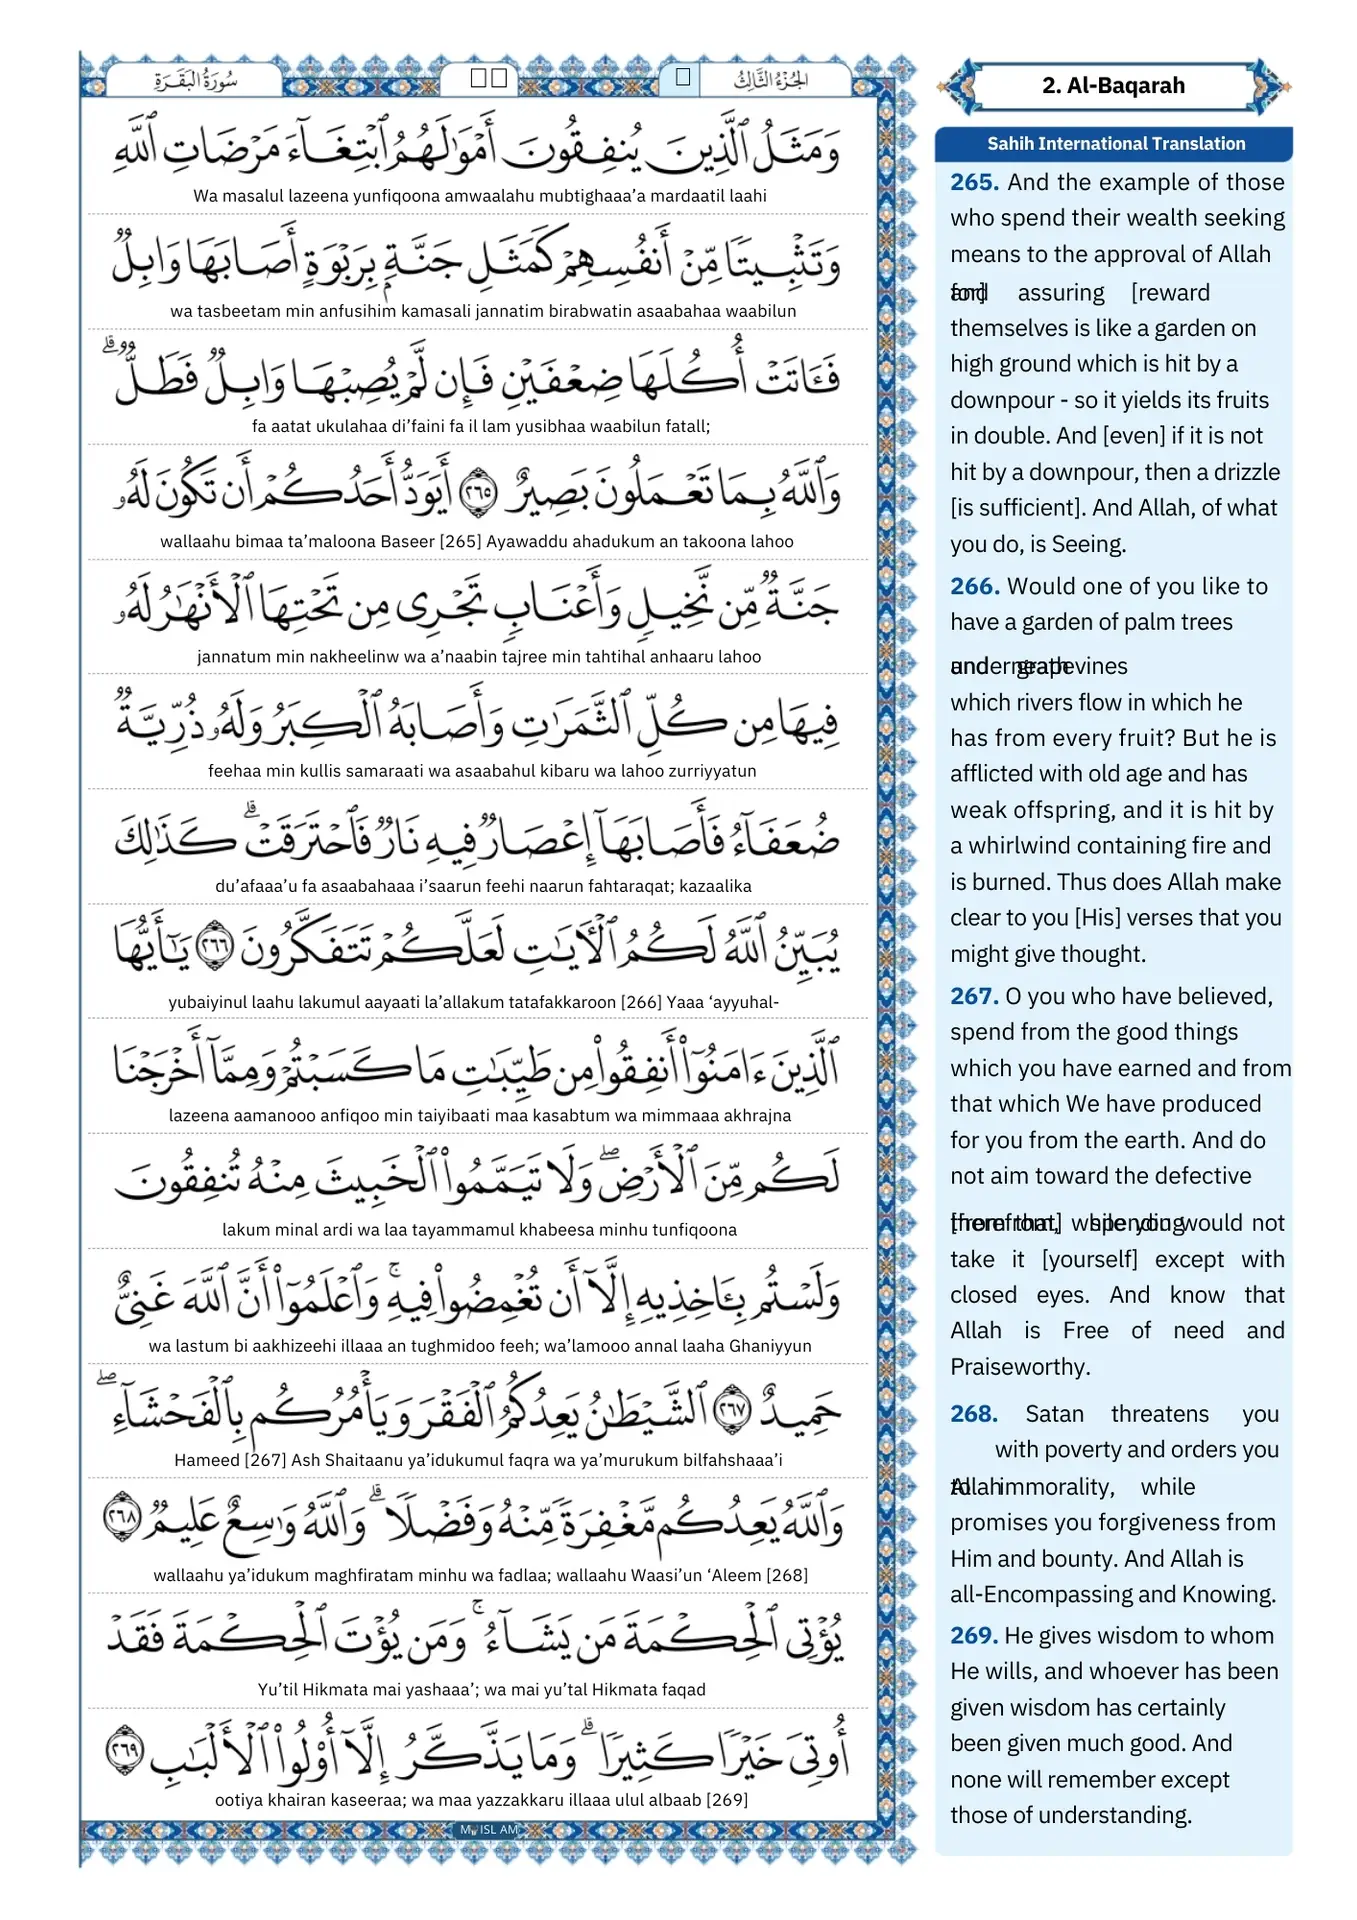 سُورَةُ البَقَرَةِ
الجُزْءُ الثَّالِثُ
وَمَثَلُ ٱلَّذِينَ يُنفِقُونَ أَمْوَٰلَهُمُ ٱبْتِغَآءَ مَرْضَاتِ ٱللَّهِ
Wa masalul lazeena yunfiqoona amwaalahu mubtighaaa’a mardaatil laahi
وَتَثْبِيتًا مِّنْ أَنفُسِهِمْ كَمَثَلِ جَنَّةٍۭ بِرَبْوَةٍ أَصَابَهَا وَابِلٌ
wa tasbeetam min anfusihim kamasali jannatim birabwatin asaabahaa waabilun
فَـَٔاتَتْ أُكُلَهَا ضِعْفَيْنِ فَإِن لَّمْ يُصِبْهَا وَابِلٌ فَطَلٌّ ۗ
fa aatat ukulahaa di’faini fa il lam yusibhaa waabilun fatall;
وَٱللَّهُ بِمَا تَعْمَلُونَ بَصِيرٌ ٢٦٥ أَيَوَدُّ أَحَدُكُمْ أَن تَكُونَ لَهُۥ
wallaahu bimaa ta’maloona Baseer [265] Ayawaddu ahadukum an takoona lahoo
جَنَّةٌ مِّن نَّخِيلٍ وَأَعْنَابٍ تَجْرِى مِن تَحْتِهَا ٱلْأَنْهَٰرُ لَهُۥ
jannatum min nakheelinw wa a’naabin tajree min tahtihal anhaaru lahoo
فِيهَا مِن كُلِّ ٱلثَّمَرَٰتِ وَأَصَابَهُ ٱلْكِبَرُ وَلَهُۥ ذُرِّيَّةٌ
feehaa min kullis samaraati wa asaabahul kibaru wa lahoo zurriyyatun
ضُعَفَآءُ فَأَصَابَهَآ إِعْصَارٌ فِيهِ نَارٌ فَٱحْتَرَقَتْ ۗ كَذَٰلِكَ
du’afaaa’u fa asaabahaaa i’saarun feehi naarun fahtaraqat; kazaalika
يُبَيِّنُ ٱللَّهُ لَكُمُ ٱلْـَٔايَٰتِ لَعَلَّكُمْ تَتَفَكَّرُونَ ٢٦٦ يَٰٓأَيُّهَا
yubaiyinul laahu lakumul aayaati la’allakum tatafakkaroon [266] Yaaa ‘ayyuhal-
ٱلَّذِينَ ءَامَنُوٓا۟ أَنفِقُوا۟ مِن طَيِّبَٰتِ مَا كَسَبْتُمْ وَمِمَّآ أَخْرَجْنَا
lazeena aamanooo anfiqoo min taiyibaati maa kasabtum wa mimmaaa akhrajna
لَكُم مِّنَ ٱلْأَرْضِ ۖ وَلَا تَيَمَّمُوا۟ ٱلْخَبِيثَ مِنْهُ تُنفِقُونَ
lakum minal ardi wa laa tayammamul khabeesa minhu tunfiqoona
وَلَسْتُم بِـَٔاخِذِيهِ إِلَّآ أَن تُغْمِضُوا۟ فِيهِ ۚ وَٱعْلَمُوٓا۟ أَنَّ ٱللَّهَ غَنِىٌّ
wa lastum bi aakhizeehi illaaa an tughmidoo feeh; wa’lamooo annal laaha Ghaniyyun
حَمِيدٌ ٢٦٧ ٱلشَّيْطَٰنُ يَعِدُكُمُ ٱلْفَقْرَ وَيَأْمُرُكُم بِٱلْفَحْشَآءِ ۖ
Hameed [267] Ash Shaitaanu ya’idukumul faqra wa ya’murukum bilfahshaaa’i
وَٱللَّهُ يَعِدُكُم مَّغْفِرَةً مِّنْهُ وَفَضْلًا ۗ وَٱللَّهُ وَٰسِعٌ عَلِيمٌ ٢٦٨
wallaahu ya’idukum maghfiratam minhu wa fadlaa; wallaahu Waasi’un ‘Aleem [268]
يُؤْتِى ٱلْحِكْمَةَ مَن يَشَآءُ ۚ وَمَن يُؤْتَ ٱلْحِكْمَةَ فَقَدْ
Yu’til Hikmata mai yashaaa’; wa mai yu’tal Hikmata faqad
أُوتِىَ خَيْرًا كَثِيرًا ۗ وَمَا يَذَّكَّرُ إِلَّآ أُو۟لُوا۟ ٱلْأَلْبَٰبِ ٢٦٩
ootiya khairan kaseeraa; wa maa yazzakkaru illaaa ulul albaab [269]
2. Al-Baqarah
Sahih International Translation
265. And the example of those
who spend their wealth seeking
means to the approval of Allah
and assuring [reward
for]
themselves is like a garden on
high ground which is hit by a
downpour - so it yields its fruits
in double. And [even] if it is not
hit by a downpour, then a drizzle
[is sufficient]. And Allah, of what
you do, is Seeing.
266. Would one of you like to
have a garden of palm trees
and grapevines
underneath
which rivers flow in which he
has from every fruit? But he is
afflicted with old age and has
weak offspring, and it is hit by
a whirlwind containing fire and
is burned. Thus does Allah make
clear to you [His] verses that you
might give thought.
267. O you who have believed,
spend from the good things
which you have earned and from
that which We have produced
for you from the earth. And do
not aim toward the defective
therefrom, spending
[from that] while you would not
take it [yourself] except with
closed eyes. And know that
Allah is Free of need and
Praiseworthy.
268. Satan threatens you
with poverty and orders you
to immorality, while
Allah
promises you forgiveness from
Him and bounty. And Allah is
all-Encompassing and Knowing.
269. He gives wisdom to whom
He wills, and whoever has been
given wisdom has certainly
been given much good. And
none will remember except
those of understanding.